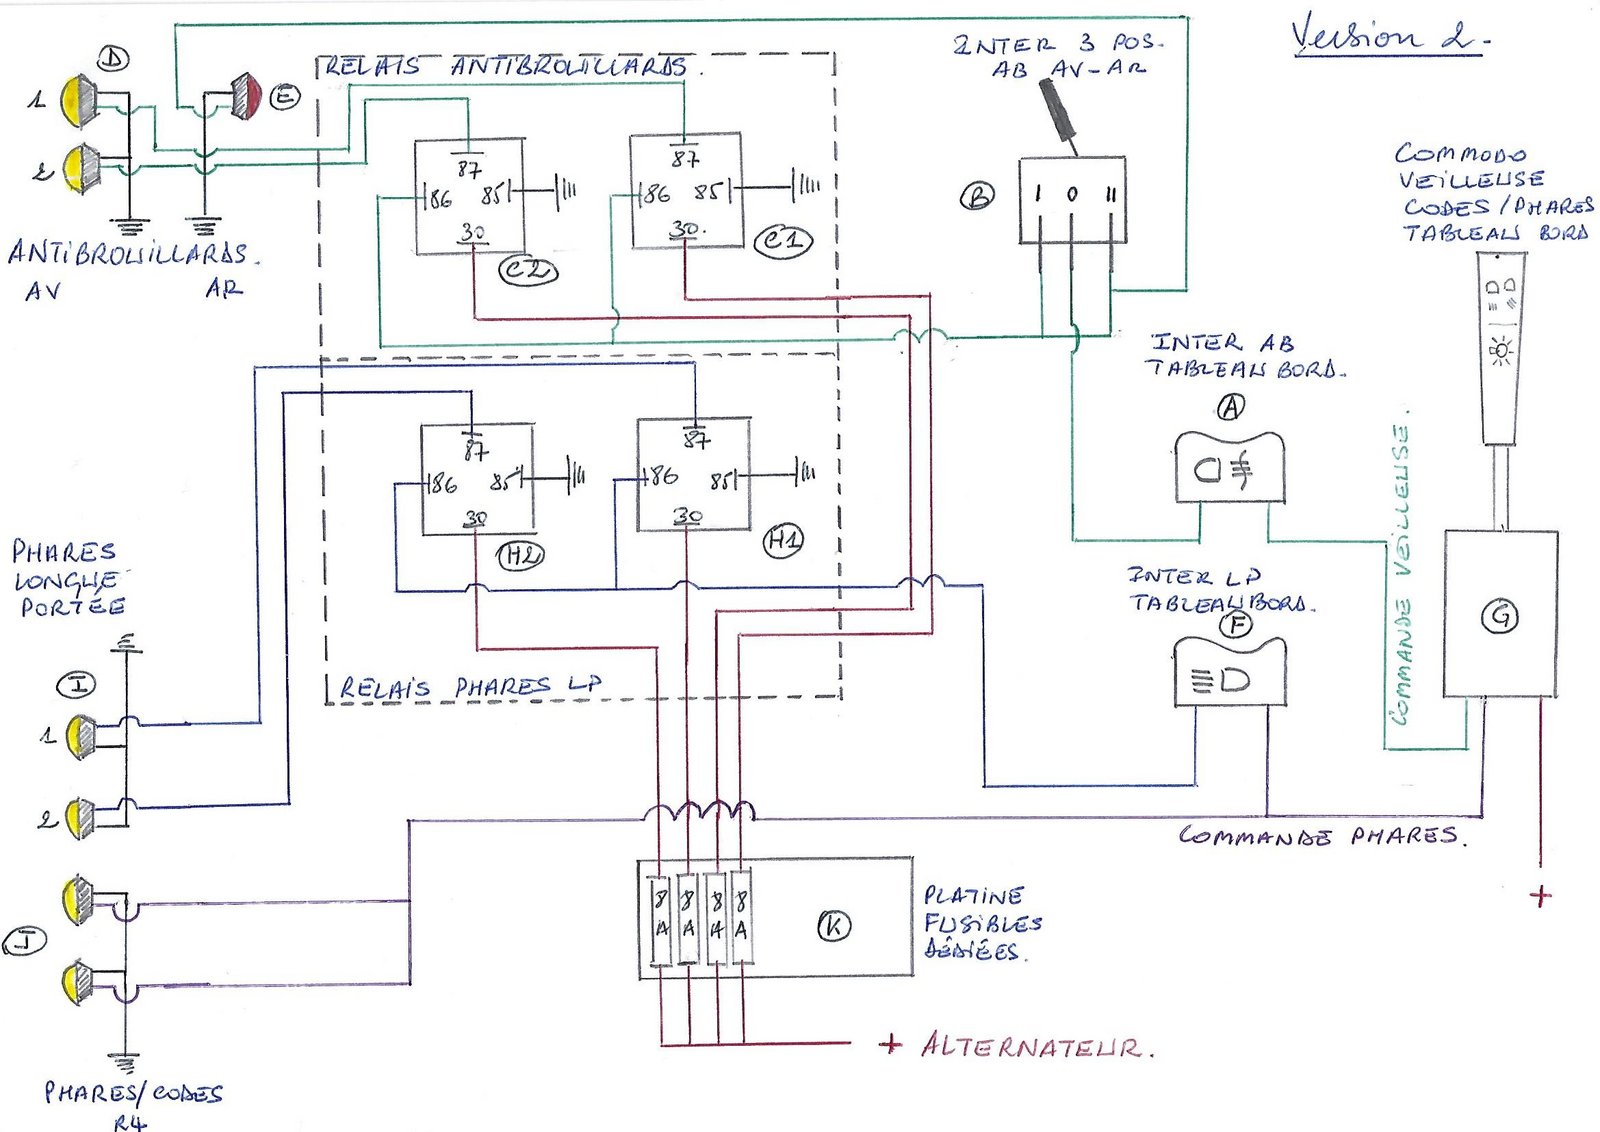 Version 2.
INTER 3 POS.
AB AV-AR
RELAIS ANTIBROUILLARDS.
D
1
2
E
ANTIBROUILLARDS.
AV
AR
87
86
85
30
C2
87
86
85
30.
C1
B
I
0
II
COMMODO
VEILLEUSE
CODES/PHARES
TABLEAU BORD
INTER AB
TABLEAU BORD.
A
COMMANDE VEILLEUSE.
87
86
85
30
H2
87
86
85
30
H1
PHARES
LONGUE
PORTÉE
I
1
2
INTER LP
TABLEAU BORD.
F
G
RELAIS PHARES LP
COMMANDE PHARES.
+
8
A
8
A
8
A
8
A
K
PLATINE
FUSIBLES
DÉDIÉES.
J
+ ALTERNATEUR.
PHARES/CODES
R4